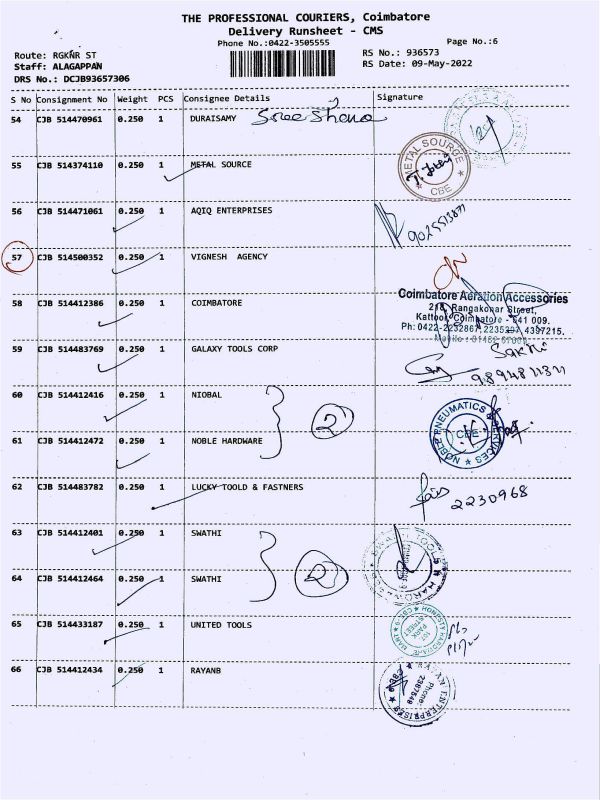 THE PROFESSIONAL COURIERS, Coimbatore
Delivery Runsheet - CMS
Phone No.:0422-3505555
Page No.:6
Route: RGKNR ST
RS No.: 936573
Staff: ALAGAPPAN
RS Date: 09-May-2022
DRS No.: DCJB93657306
S No Consignment No Weight PCS Consignee Details Signature
54 CJB 514470961 0.250 1 DURAISAMY
55 CJB 514374110 0.250 1 METAL SOURCE
METAL SOURCE
CBE
56 CJB 514471061 0.250 1 AQIQ ENTERPRISES
57 CJB 514500352 0.250 1 VIGNESH AGENCY
58 CJB 514412386 0.250 1 COIMBATORE
Coimbatore Aeration Accessories
218, Rangakonar Street,
Kattoor, Coimbatore - 641 009.
Ph: 0422-2232867, 4397215.
59 CJB 514483769 0.250 1 GALAXY TOOLS CORP
60 CJB 514412416 0.250 1 NIOBAL
2
61 CJB 514412472 0.250 1 NOBLE HARDWARE
NOBLE PNEUMATICS & SERVICES
CBE
62 CJB 514483782 0.250 1 LUCKY TOOLD & FASTNERS
2230968
63 CJB 514412401 0.250 1 SWATHI
2
64 CJB 514412464 0.250 1 SWATHI
65 CJB 514433187 0.250 1 UNITED TOOLS
66 CJB 514412434 0.250 1 RAYANB